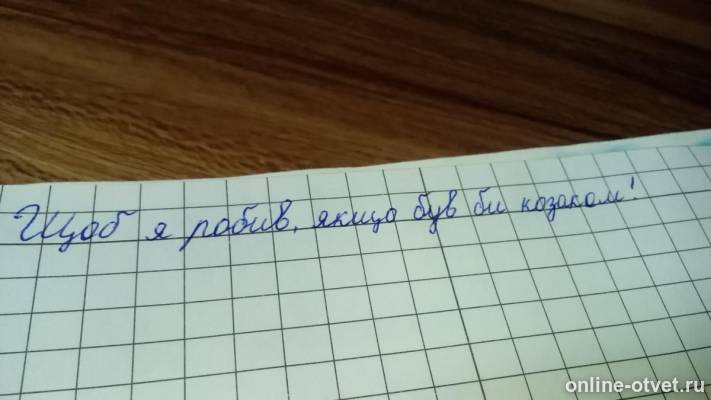 Щоб я робив, якщо був би козаком!
online-otvet.ru